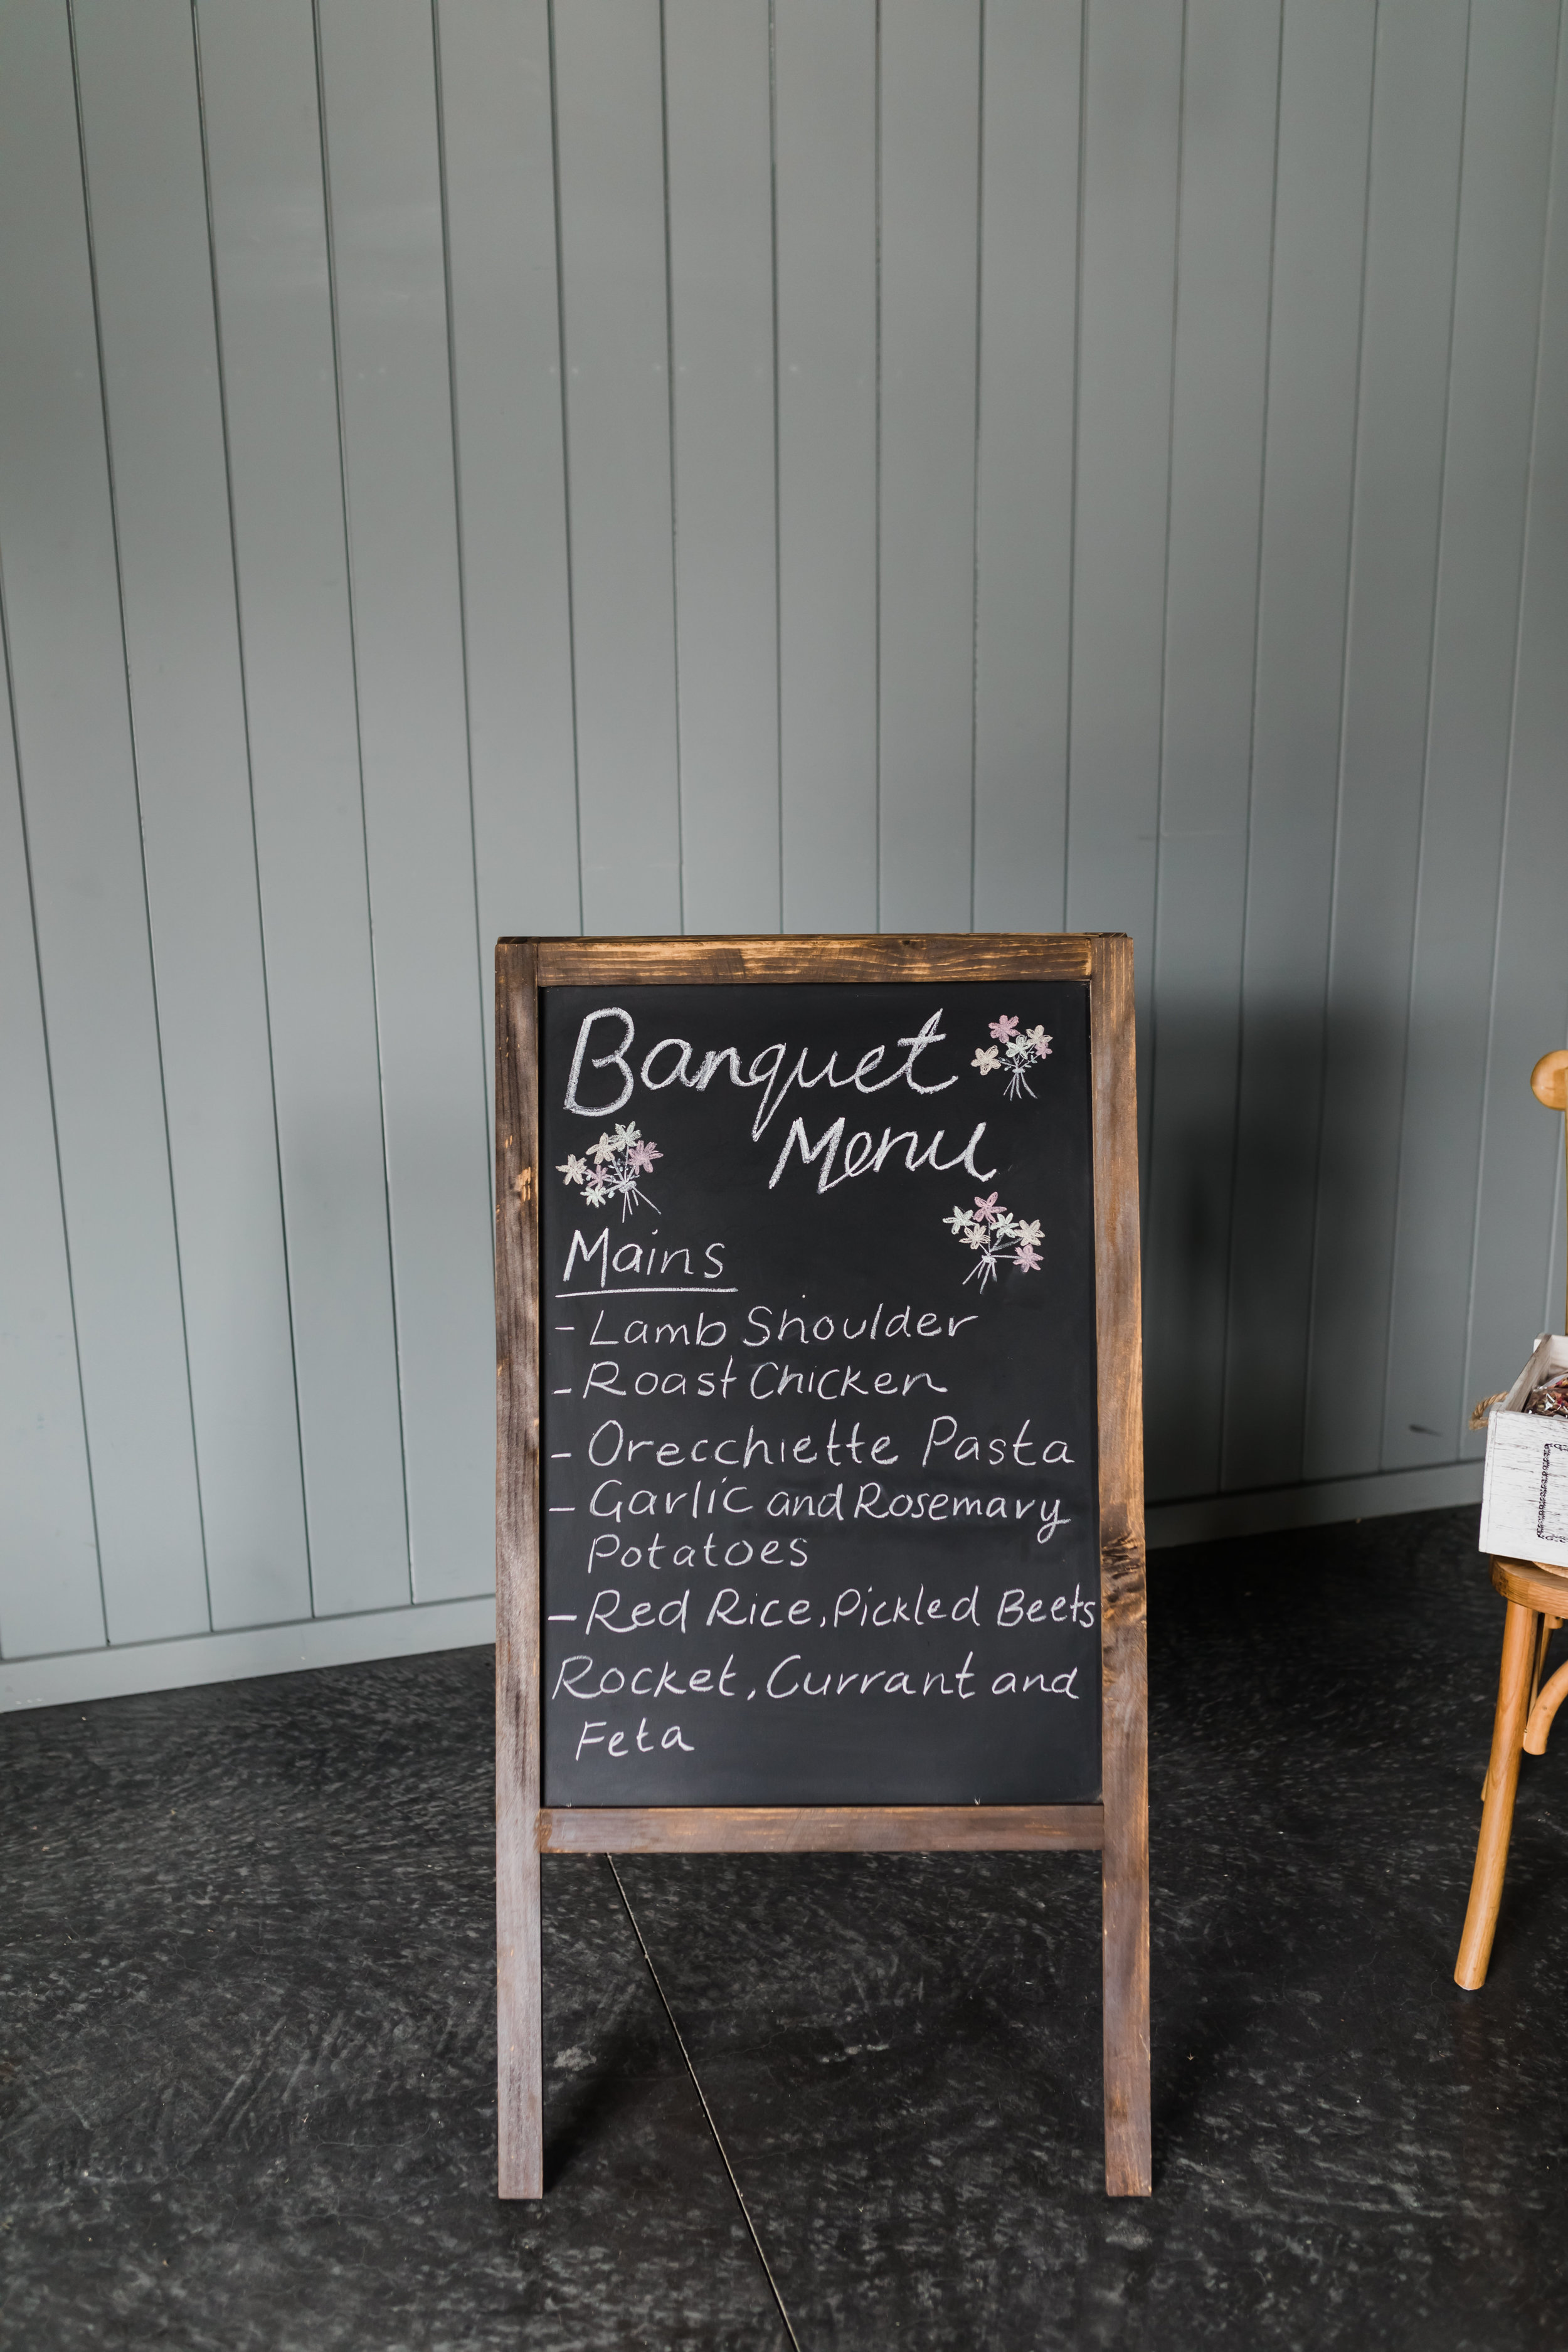 Banquet
Menu
Mains
- Lamb Shoulder
- Roast Chicken
- Orecchiette Pasta
- Garlic and Rosemary
Potatoes
- Red Rice, Pickled Beets
Rocket, Currant and
Feta